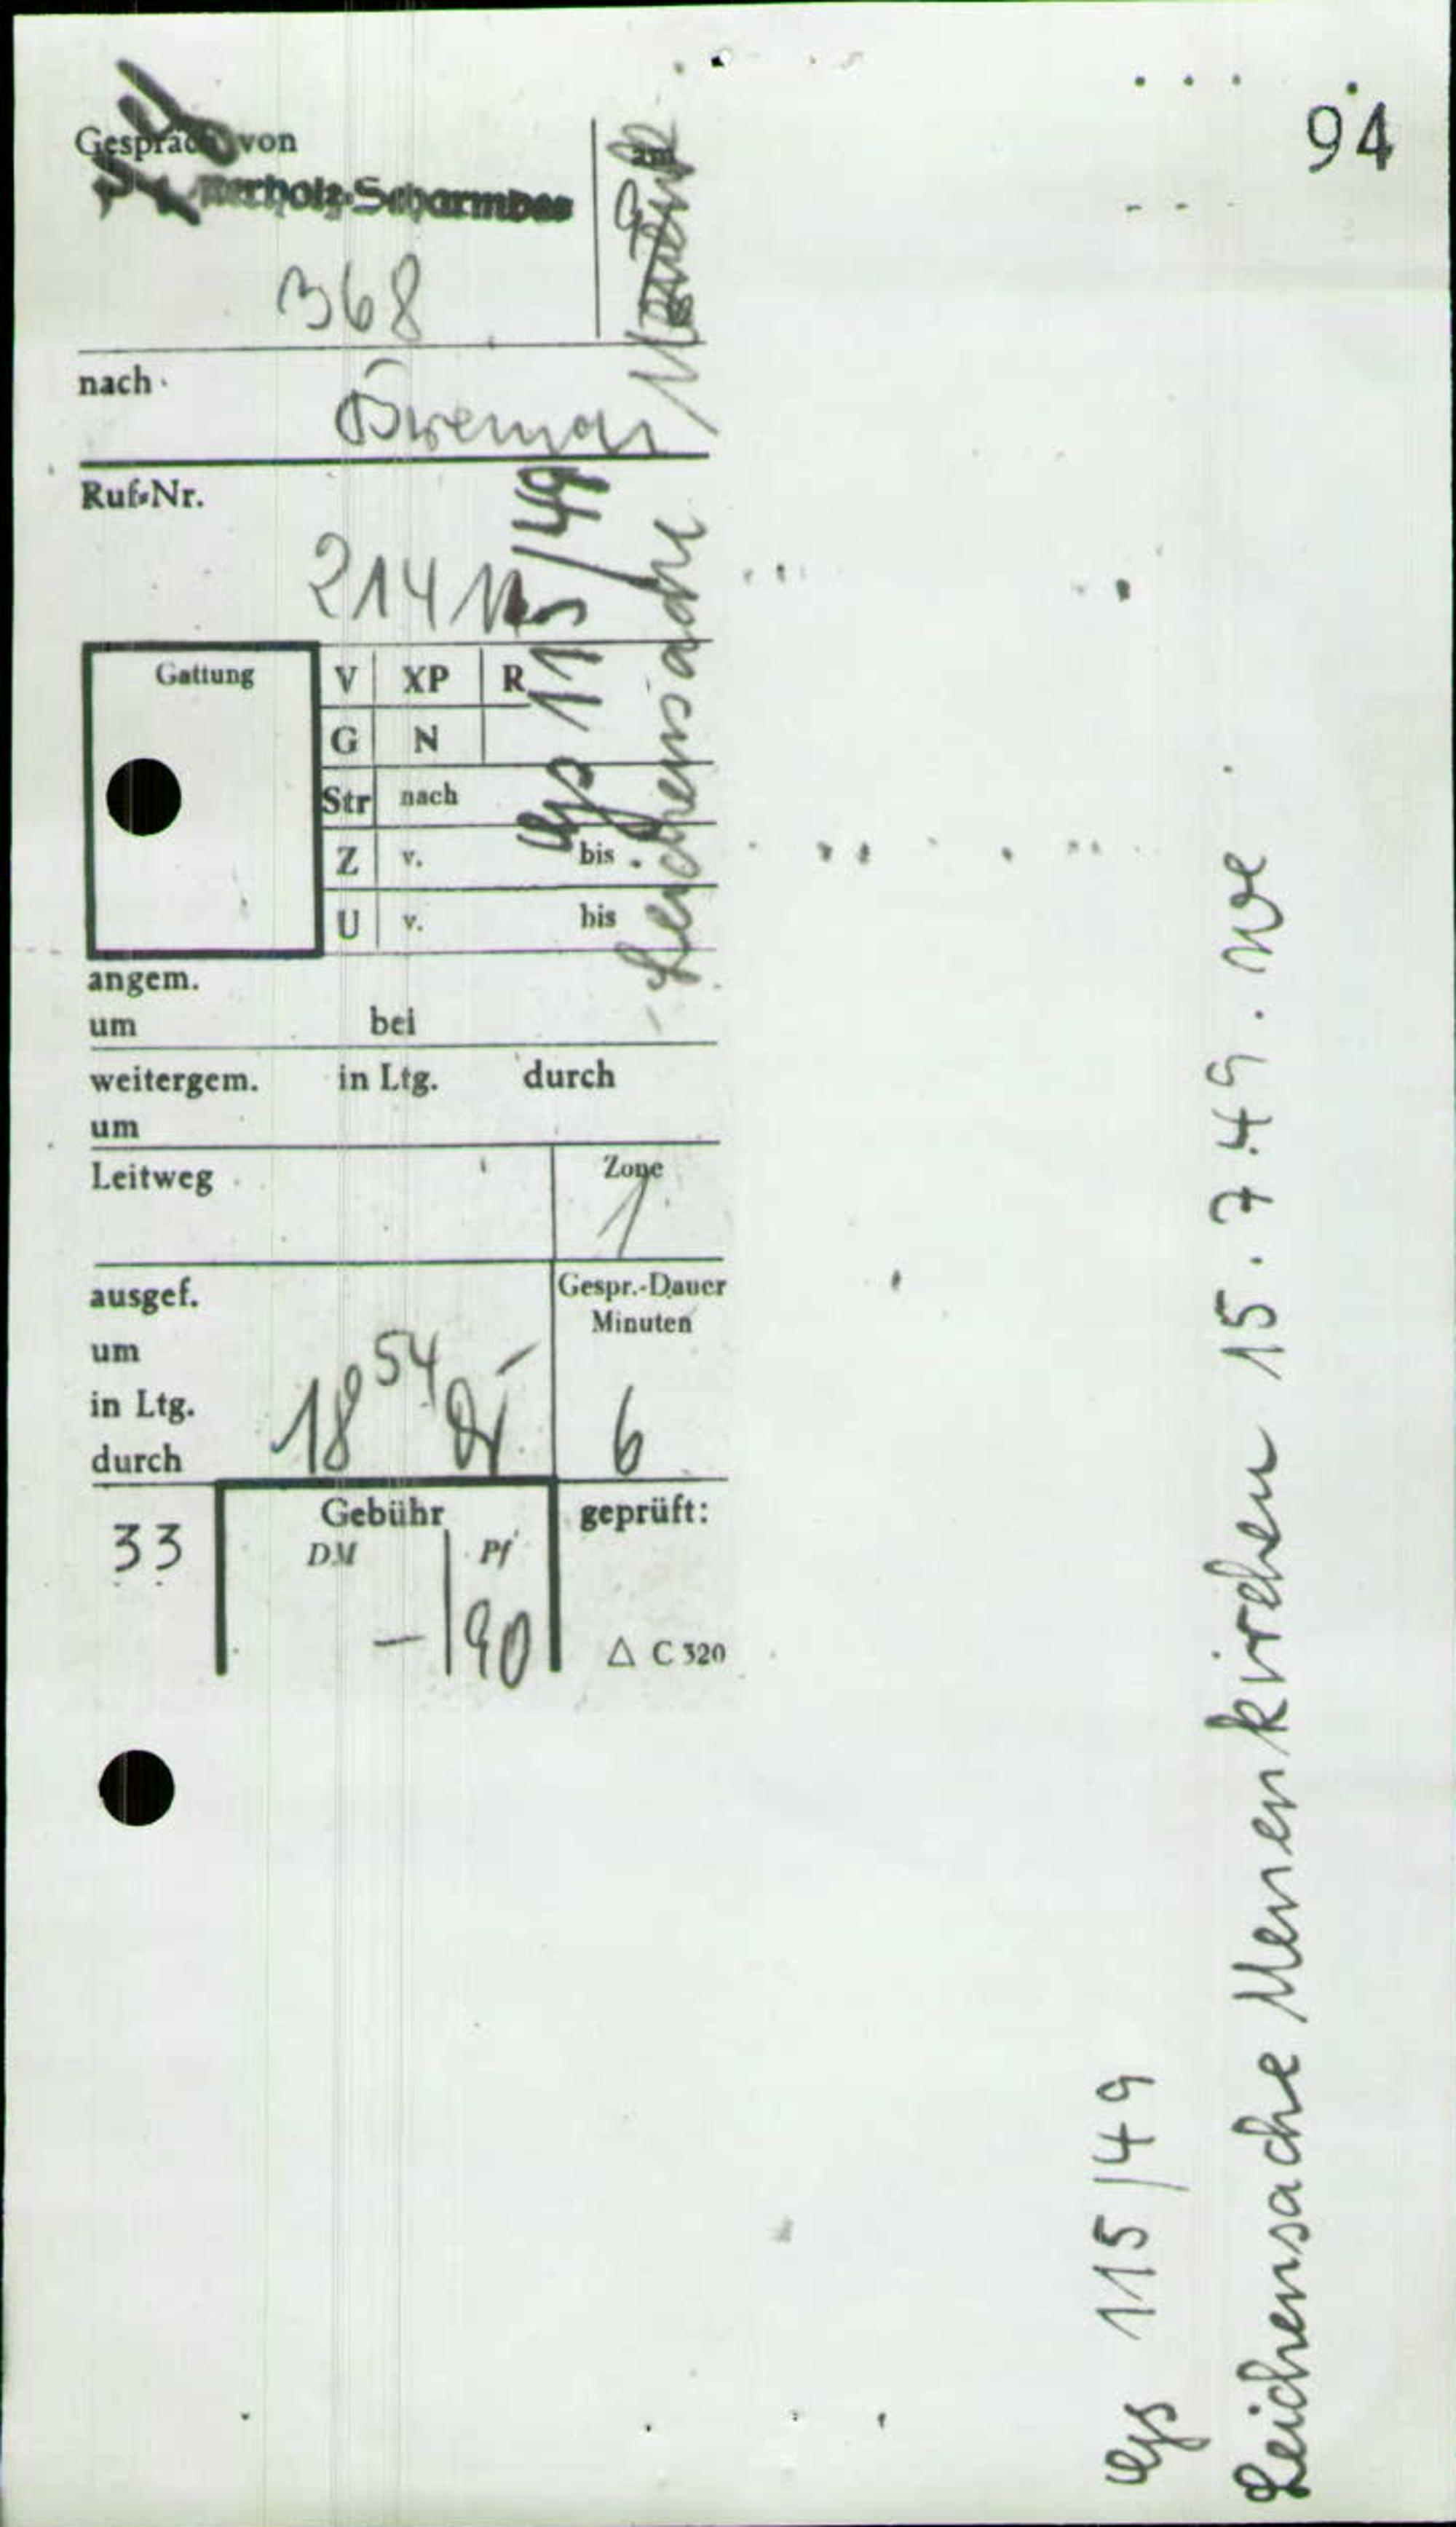 94
Gespräch von
am
Osterholz-Scharmbeck
368
nach
Bremen
Ruf-Nr.
21411
Gattung
V XP R
G N
Str nach
Z v. bis
U v. bis
angem.
um bei
weitergem. in Ltg. durch
um
Leitweg
Zone
1
ausgef.
Gespr.-Dauer
Minuten
um
in Ltg.
18 54
6
durch
33
Gebühr
geprüft:
DM Pf
— 90
△ C 320
Gs 115/49
Leichensache
Gs 115/49
Leichensache Meyenkirchen 15.7.49.